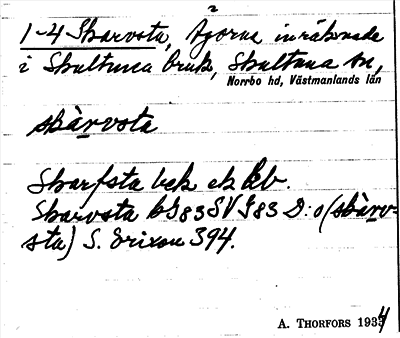 1-4 Skarvsta, ägorna inräknade
i Skultuna bruk, Skultuna sn,
Norrbo hd, Västmanlands län
skàrvsta
Skarfsta bek ek kb.
Skarvsta bG83SVJ83 D:o (skàrv-
sta) S. Erixon 394.
A. THORFORS 1934